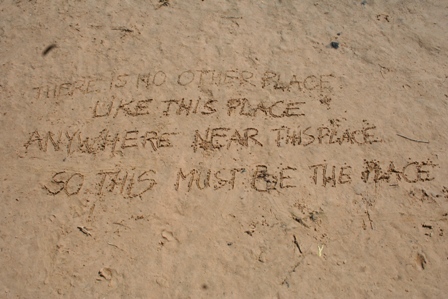 THERE IS NO OTHER PLACE
LIKE THIS PLACE
ANYWHERE NEAR THIS PLACE
SO THIS MUST BE THE PLACE